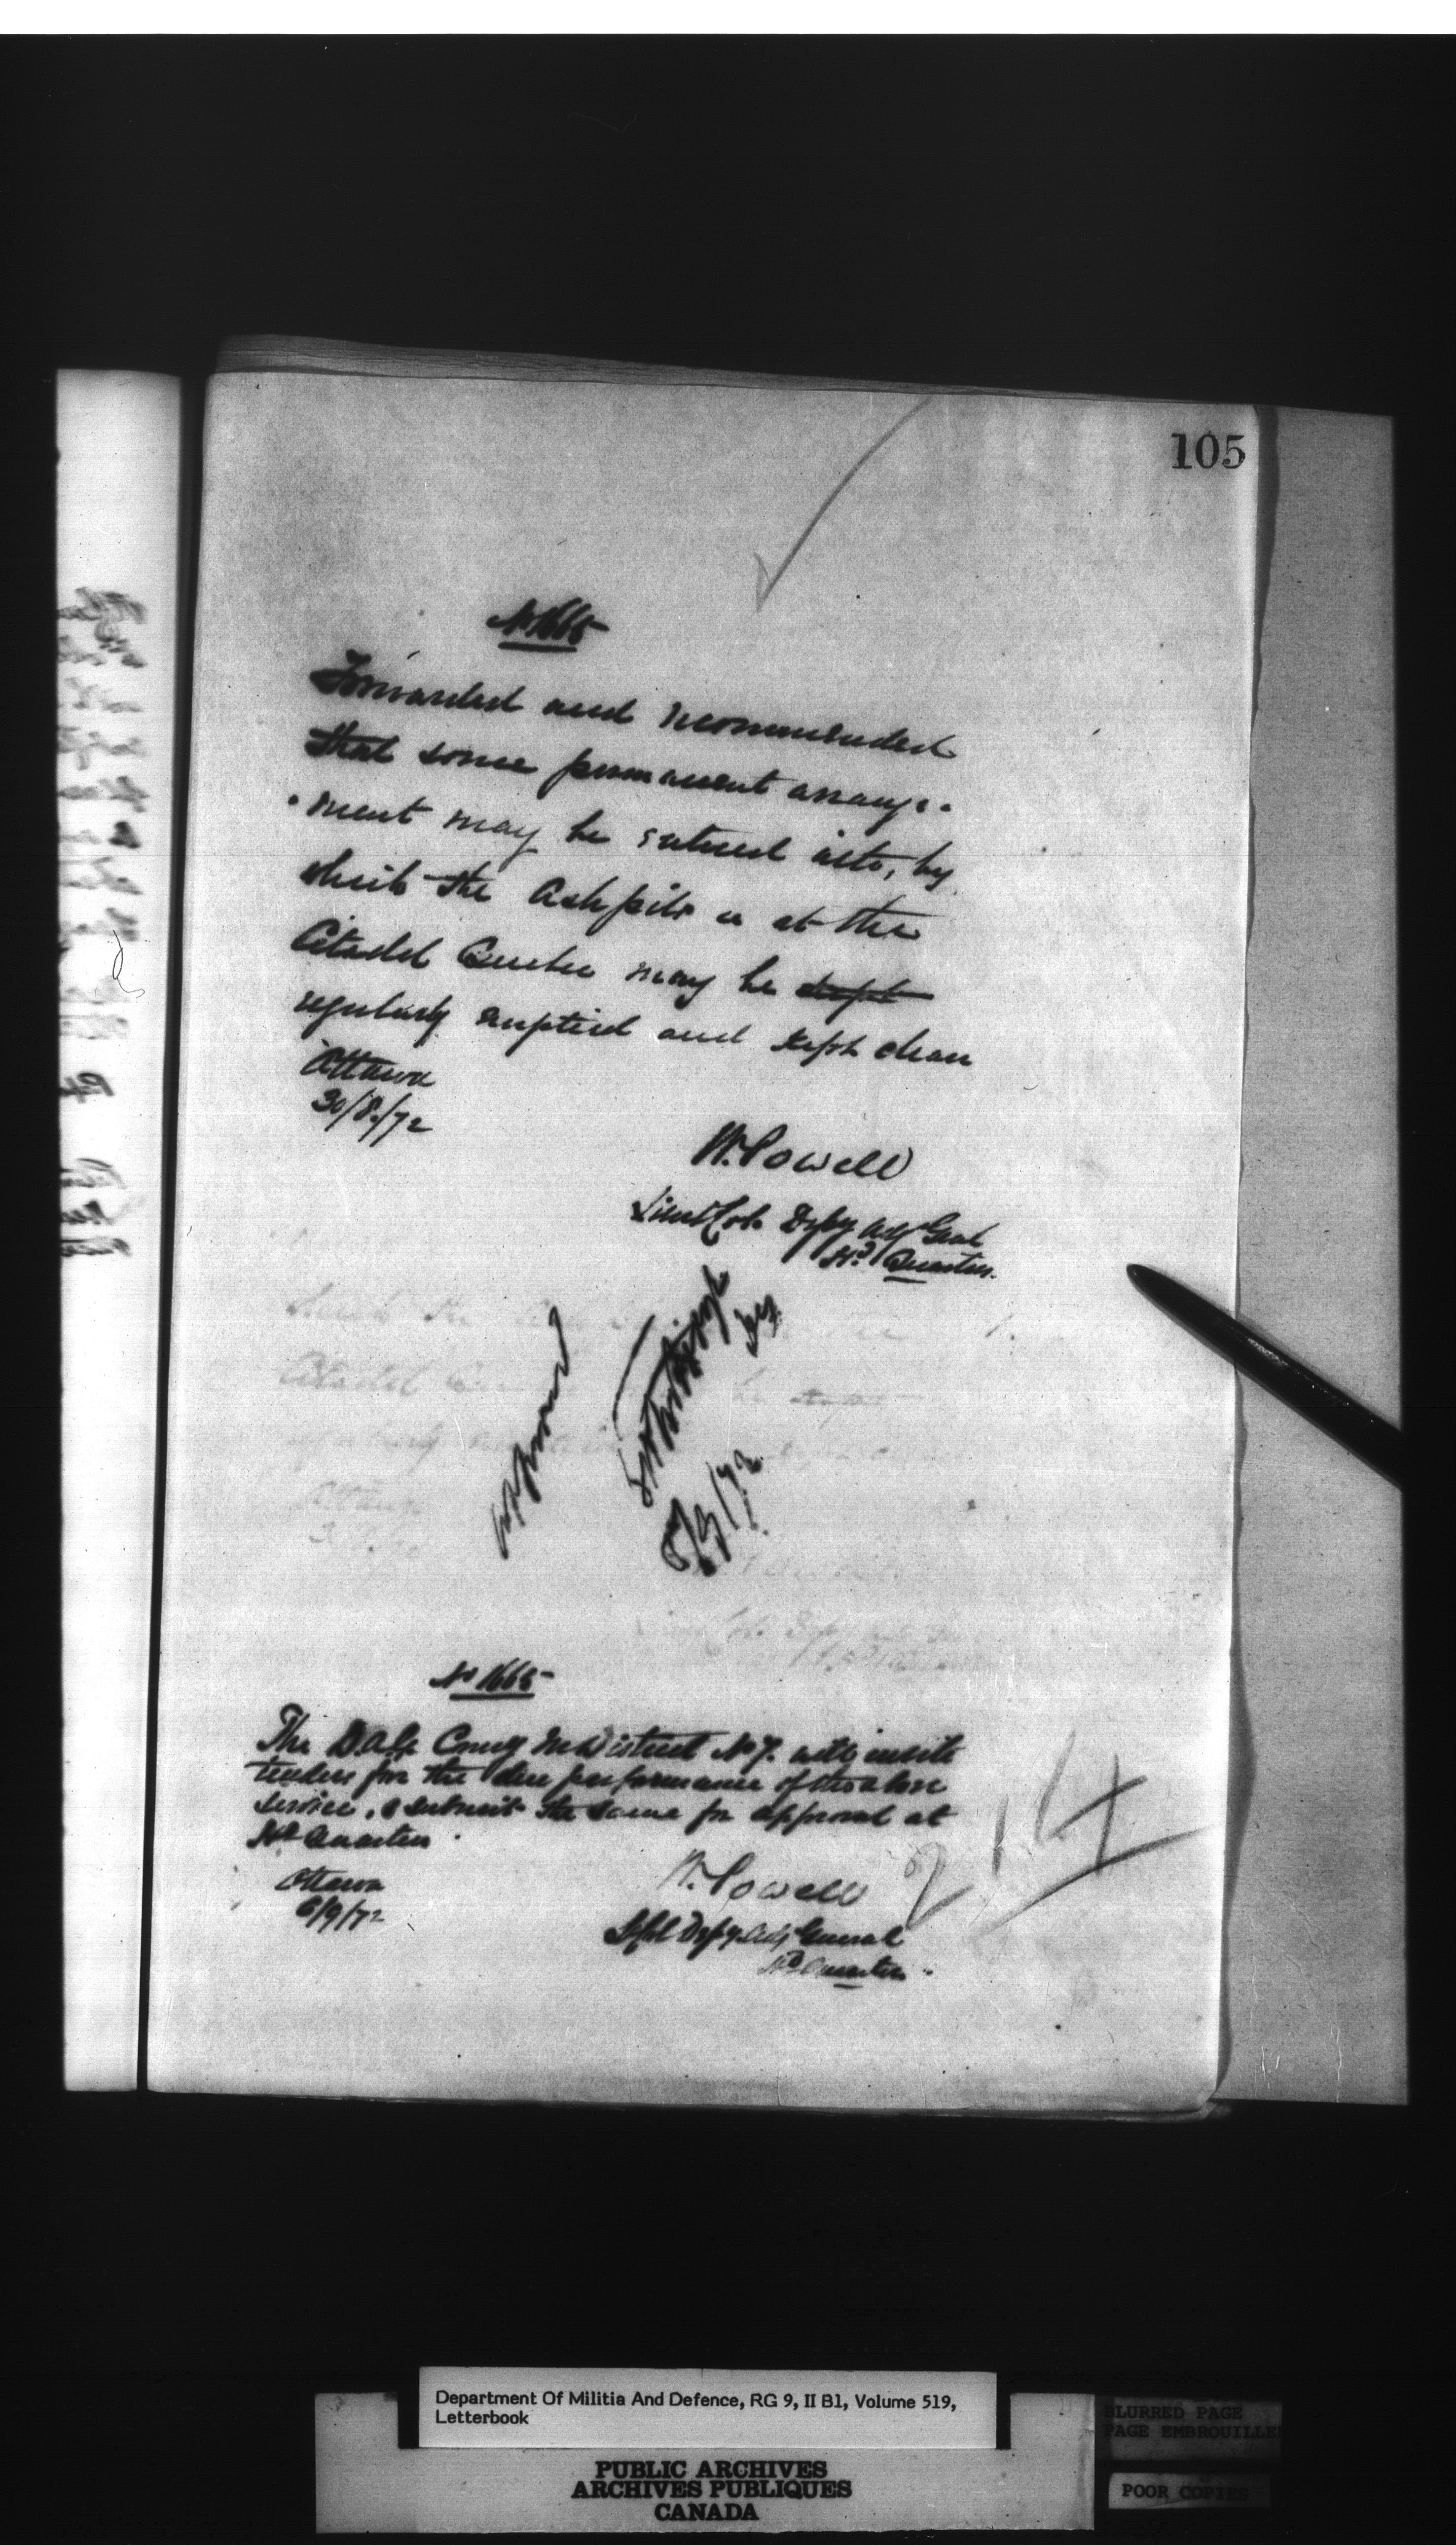 105
No 1665
Forwarded and recommended
that some permanent arrange-
-ment may be entered into, by
which the Ash pits at the
Citadel Quebec may be kept
regularly emptied and kept clean
Ottawa
30/8/72
W. Powell
Lieut Col. Depy Adj Genl
Hd Quarters.
Approved
/72
No 1665
The D.A.G. Comg M District No 7. will invite
tenders for the due performance of the above
service, & submit the same for approval at
Hd Quarters.
Ottawa
6/9/72
W. Powell
Lt Col Depy Adj General
Hd Quarters
214
Department Of Militia And Defence, RG 9, II B1, Volume 519,
Letterbook
PUBLIC ARCHIVES
ARCHIVES PUBLIQUES
CANADA
BLURRED PAGE
PAGE EMBROUILLE
POOR COPIES